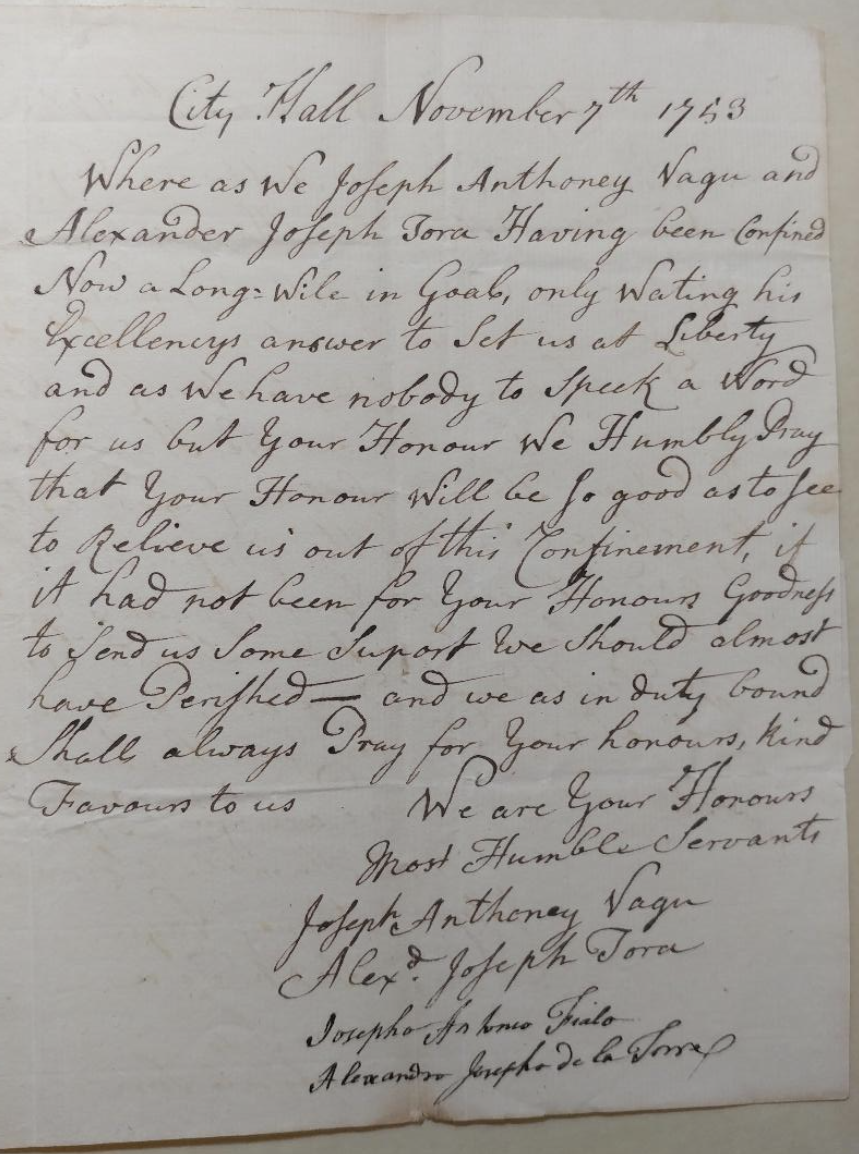 City Hall November 7th 1753
Where as We Joseph Anthoney Vagu and
Alexander Joseph Tora Having been Confined
Now a Long=Wile in Goal, only Wating his
Excellencys answer to Set us at Liberty
and as We have nobody to Speek a Word
for us but Your Honour We Humbly Pray
that Your Honour Will be so good as to see
to Relieve us out of this Confinement, if
it had not been for Your Honours Goodness
to Send us Some Suport We Should almost
have Perished — and we as in duty bound
Shall always Pray for Your honours, Kind
Favours to us We are Your Honours
Most Humble Servants
Joseph Anthoney Vagu
Alexd. Joseph Tora
Josepho Antonio
Alexandro Josepho de la Torre